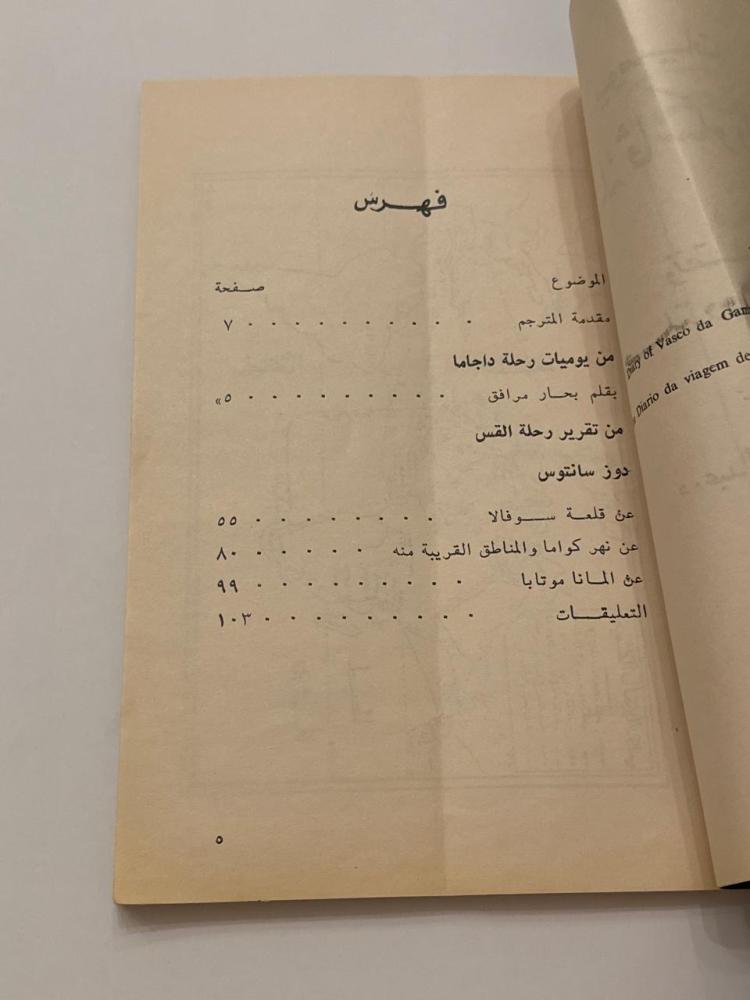 فهرس
الموضوع صفحة
مقدمة المترجم . . . . . . . . . . ٧
من يوميات رحلة داجاما
بقلم بحار مرافق . . . . . . . . . ٥»
من تقرير رحلة القس
دوز سانتوس
عن قلعة سوفالا . . . . . . . . ٥٥
عن نهر كواما والمناطق القريبة منه . . . . . . ٨٠
عن المانا موتابا . . . . . . . . . ٩٩
التعليقات . . . . . . . . . ١٠٣
٥
Diary of Vasco da
Diario da viagem de